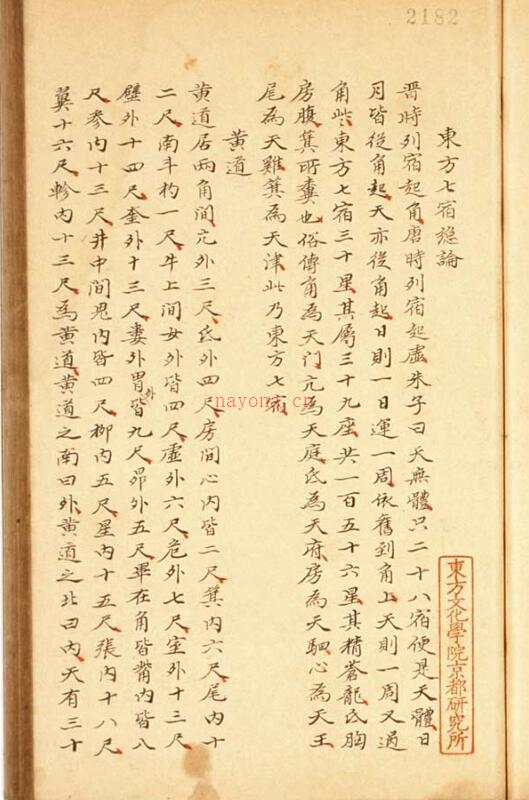 2182
東方七宿總論
晋時列宿起角唐時列宿起虛朱子曰天無體只二十八宿便是天體日
月皆從角起天亦從角起日則一日運一周依舊到角上天則一周又過
角些東方七宿三十星其屬三十九座共一百五十六星其精蒼龍氐胸
房腹箕所糞也俗傳角為天门亢為天庭氐為天府房為天駟心為天王
尾為天雞箕為天津此乃東方七宿
黄道
黄道居两角間亢外三尺氐外四尺房間心内皆二尺箕内六尺尾内十
二尺南斗杓一尺牛上間女外皆四尺虛外六尺危外七尺室外十三尺
壁外十四尺奎外十三尺婁外胃外皆九尺昴外五尺畢在角皆觜内皆八
尺参内十三尺井中間鬼内皆四尺柳内五尺星内十五尺張内十八尺
翼十六尺軫内十三尺為黄道黄道之南曰外黄道之北曰内天有三十
東方文化學院京都研究所
nayona.cn